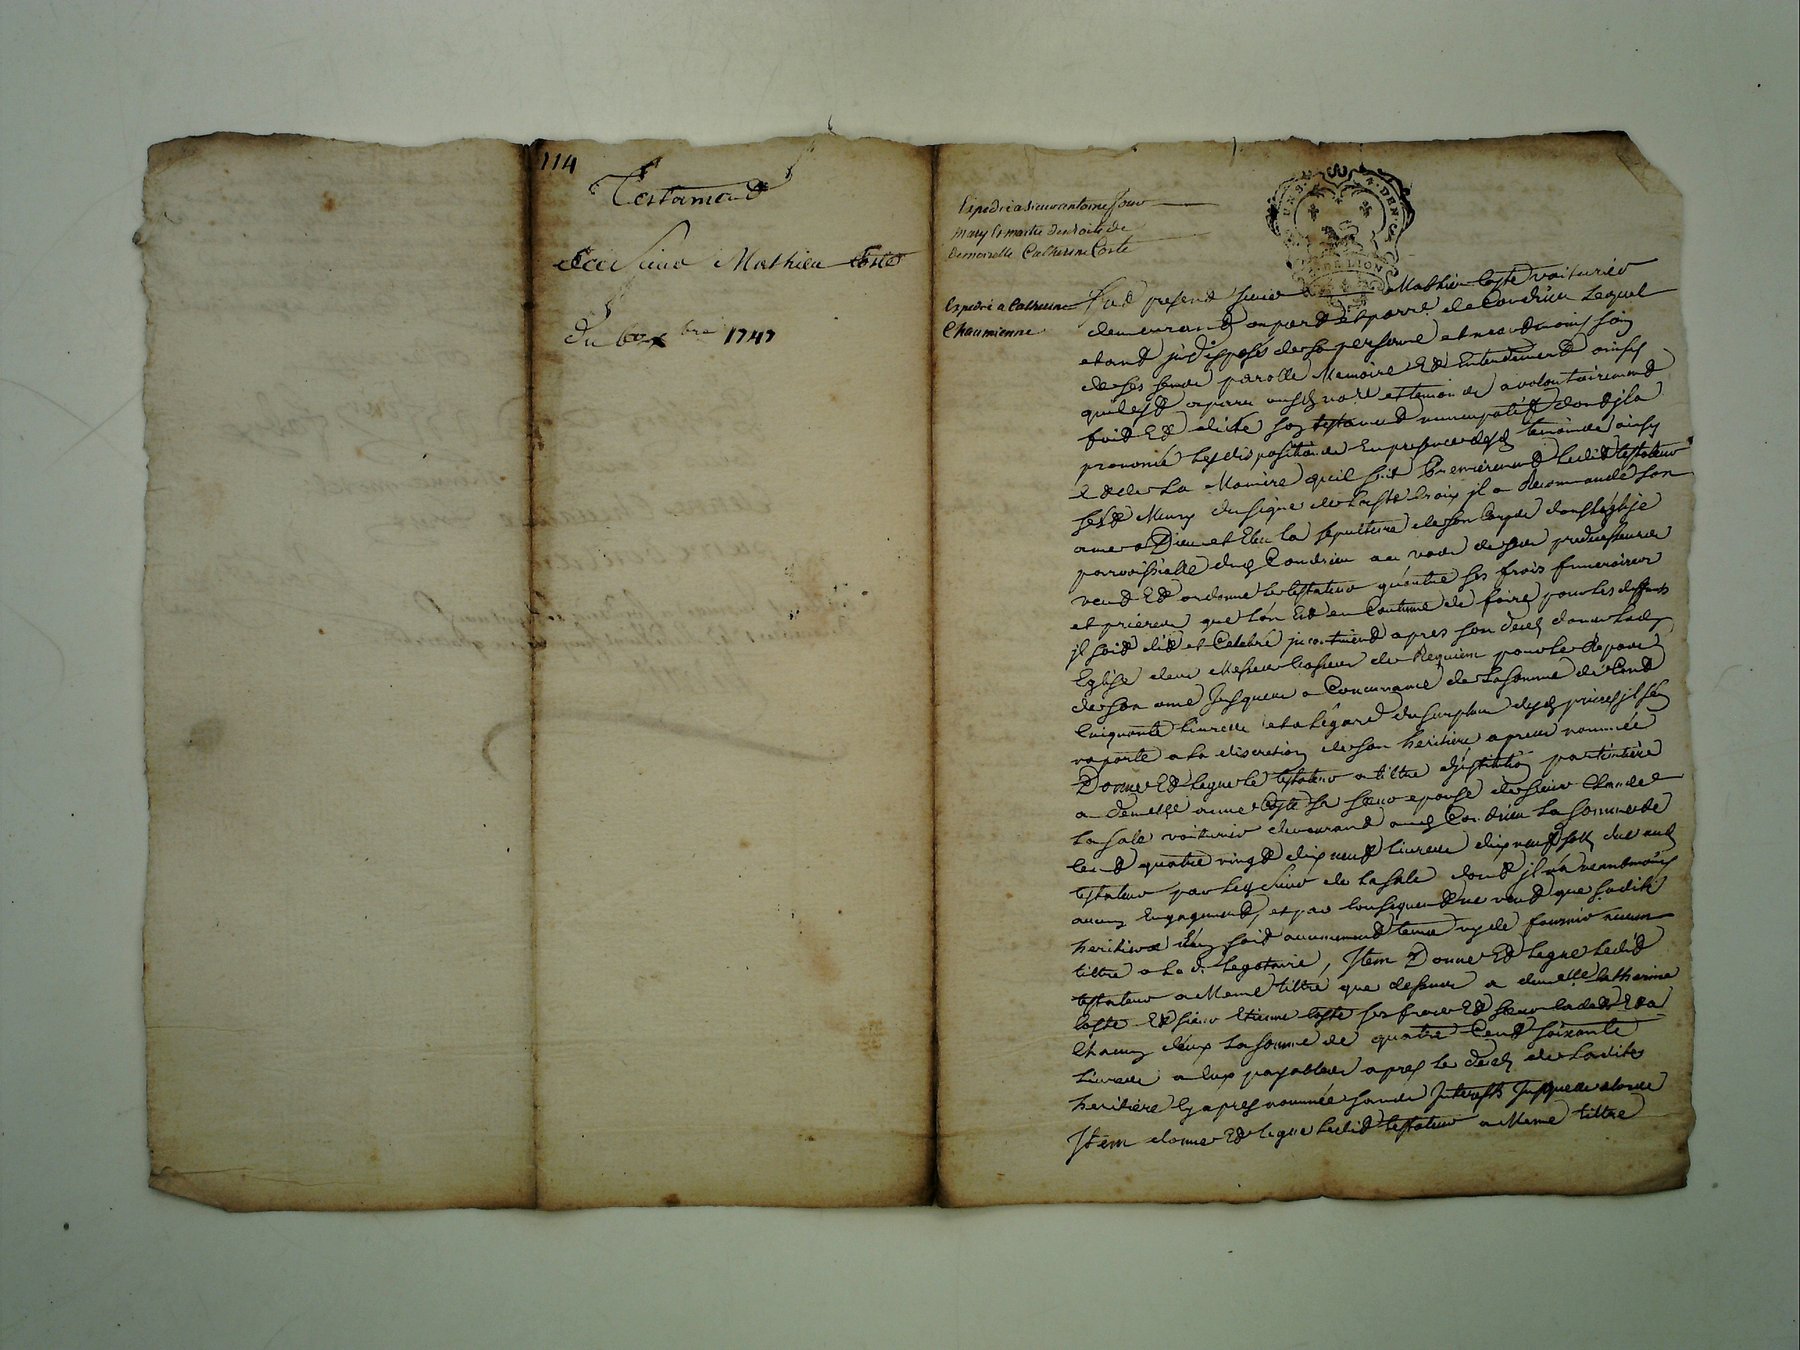 114
Testamend
de Sieur Mathieu Coste
du bre 1747
Expedié a Sieur antoine
mary et maitre des droits de
demoiselle Catherine Coste
Expedié a Catherine
Chaumienne
GEN. DE LION
fut present Sieur Mathieu Coste voiturier
demeurand au pard et parre de Condrieu Lequel
etand jndisposés de sa personne et neandmoins sain
de ses sens parolle Memoire Et Entendement ainsy
quil est aparu a volontairemend
fait Et dicté son testamend nuncupatif dond jl a
prononcé les dispositions En presence desd temoins ainsy
et de La Maniere quil suit Premieremend Ledit testateur
s'est Muny du signe de La Ste Croix jl a Recommandé son
ame a Dieu et Elu la sepulture de son Corps dans l'église
parroissialle dud Condrieu au vas de ses predecesseurs
veud Et ordonne Le testateur qu'outre ses frais funeraires
et prieres que l'on Est en Coutume de faire pour les deffunts
jl soit dit et Celebré jncontinend apres son decés dans Lad
Eglise des Messes basses de Requiem pour le Repos
de son ame Jusques a Concurrance de La somme de Cend
Cinquante Livres et a l'égard du surplus desd prieres jl s'en
raporte a la discretion de son heritiere apres nommée
Donne Et Legue Le testateur a tiltre d'jnstitution particuliere
a demlle anne Coste sa sœur epouse de sieur Claude
La Sale voiturier demeurand aud Condrieu La somme de
Cend quatre vingt dix neuf Livres dix neuf sols due aud
testateur par Led Sieur de La Sale dond jl n'a neandmoins
aucun Engagemend, et par Consequend ne veud que sadite
heritiere En soit aucunemend tenue ny de fournir aucun
tiltre a Lad. Legataire, Jtem Donne Et Legue Ledit
testateur a Meme tiltre que dessus a demlle Catherine
Coste Et sieur Etienne Coste ses frere Et sœur
Chacun d'eux La somme de quatre Cend soixante
Livres a eux payables apres Le decés de Ladite
heritiere Cy apres nommée sans Jnterests Jusques alors
Jtem donne Et Legue Ledit testateur a Meme tiltre